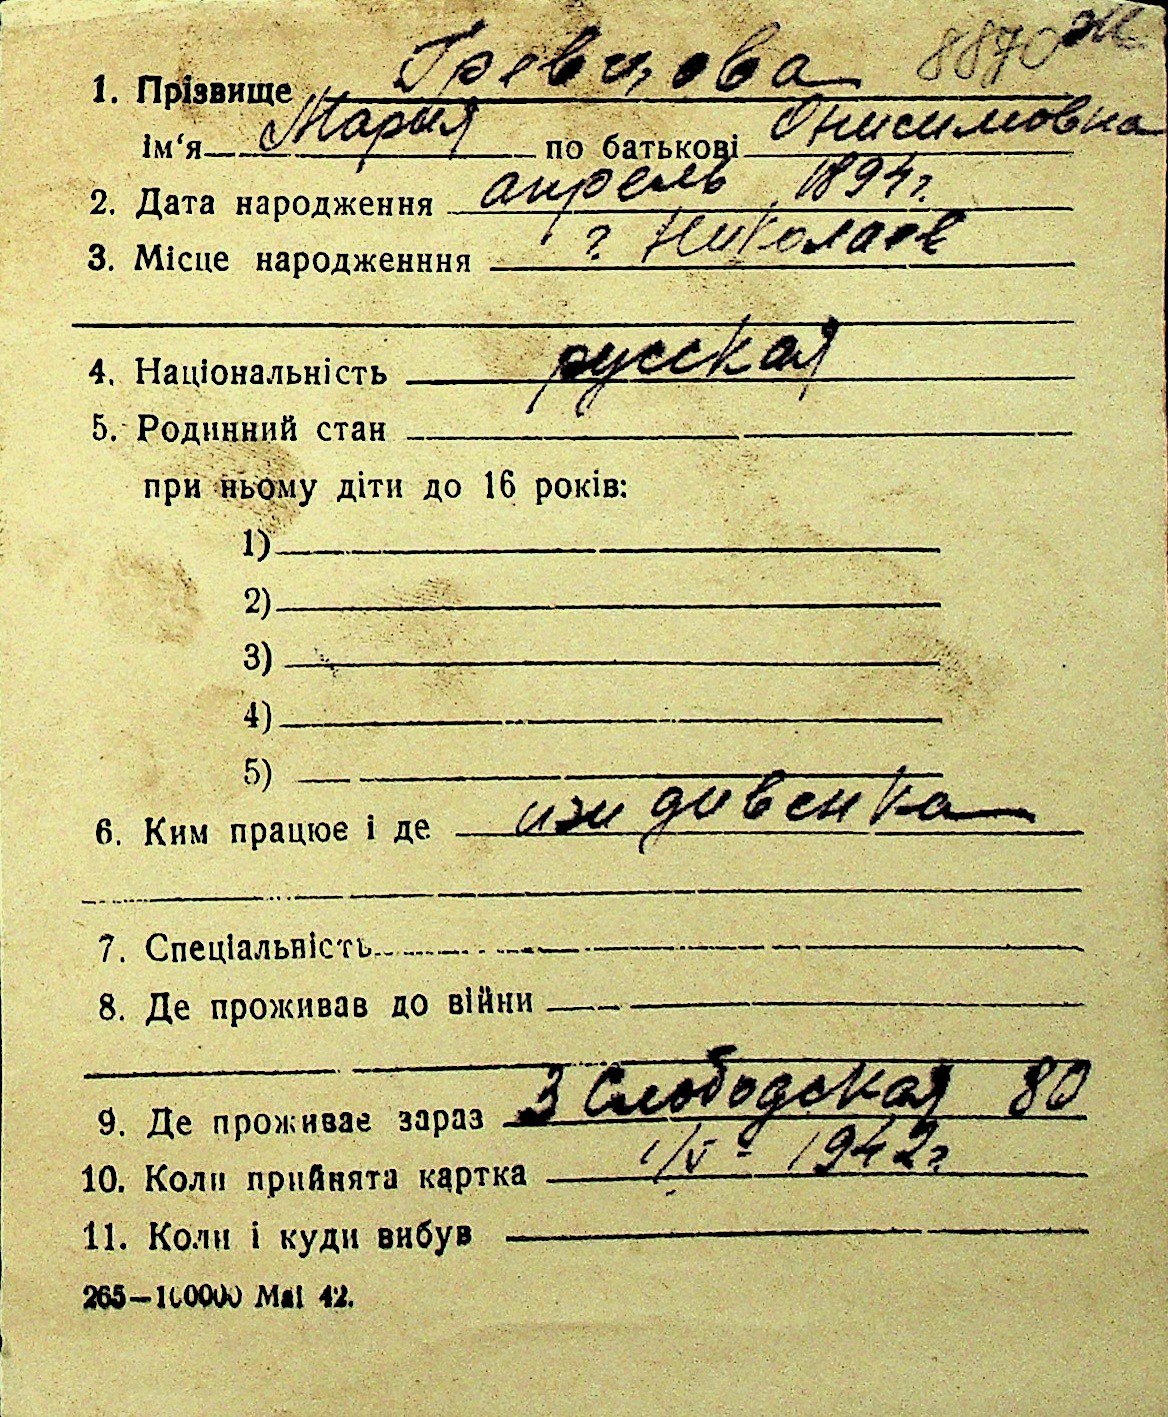 8870 Ж
1. Прізвище Гревцова
ім‘я Мария по батькові Онисимовна
2. Дата народження апрель 1894 г.
3. Місце народженння г. Николаев
4. Національність русская
5. Родинний стан
при ньому діти до 16 років:
1)
2)
3)
4)
5)
6. Ким працює і де иждивенка
7. Спеціальність
8. Де проживав до війни
9. Де проживає зараз 3 Слободская 80
10. Коли прийнята картка 1/V- 1942 г.
11. Коли і куди вибув
265—100000 Маі 42.